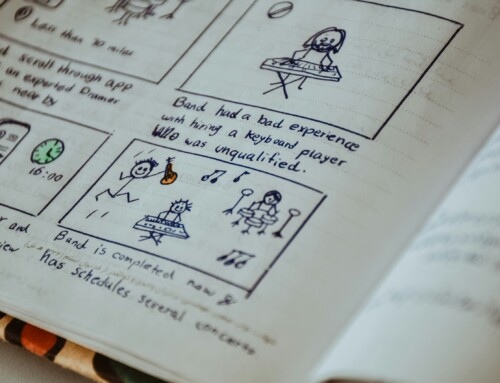 Less than 30 miles
scroll through app
an experted Dramer
near by
Band had a bad experience
with hiring a keyboard player
who was unqualified.
16:00
and
Band is completed now &
has schedules several concerts